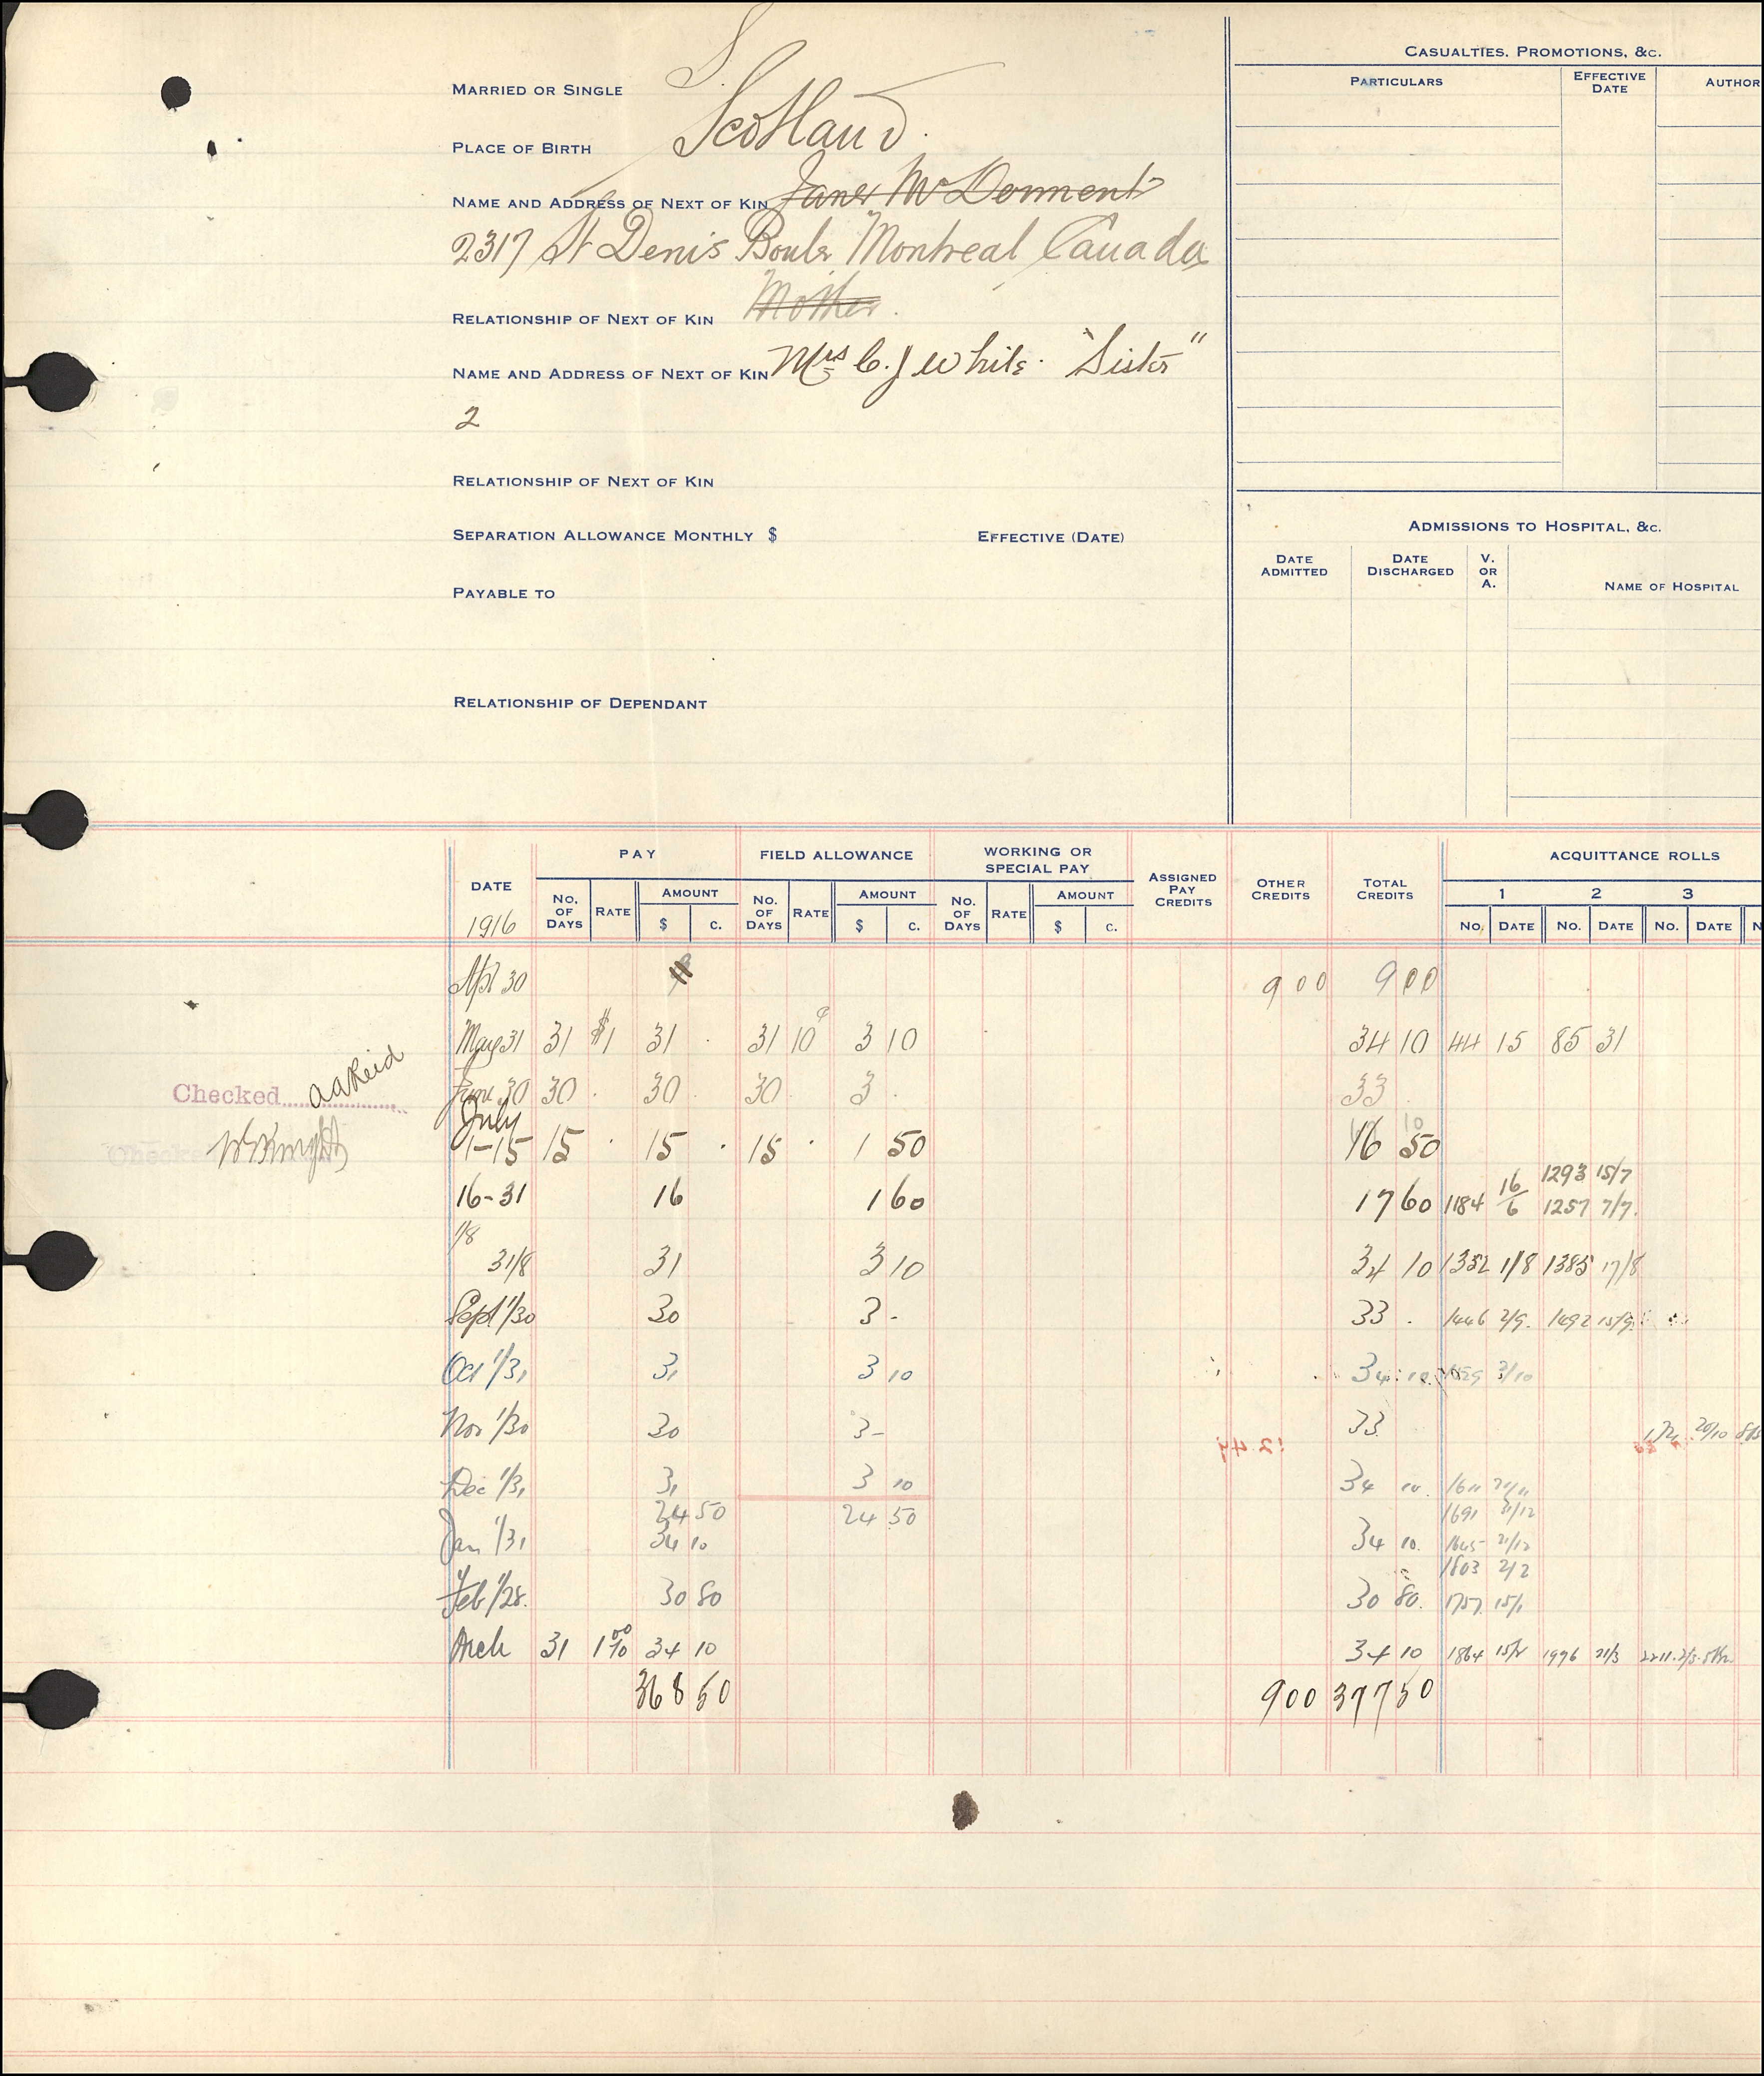 MARRIED OR SINGLE S.
PLACE OF BIRTH Scotland.
NAME AND ADDRESS OF NEXT OF KIN
2317 St Denis Boulv Montreal Canada
RELATIONSHIP OF NEXT OF KIN Mother.
NAME AND ADDRESS OF NEXT OF KIN Mrs C. J White. "Sister"
2
RELATIONSHIP OF NEXT OF KIN
SEPARATION ALLOWANCE MONTHLY $ EFFECTIVE (DATE)
PAYABLE TO
RELATIONSHIP OF DEPENDANT
CASUALTIES, PROMOTIONS, &C.
PARTICULARS EFFECTIVE DATE AUTHOR
ADMISSIONS TO HOSPITAL, &C.
DATE ADMITTED DATE DISCHARGED V. OR A. NAME OF HOSPITAL
DATE PAY FIELD ALLOWANCE WORKING OR SPECIAL PAY ASSIGNED PAY CREDITS OTHER CREDITS TOTAL CREDITS ACQUITTANCE ROLLS
NO. OF DAYS RATE AMOUNT NO. OF DAYS RATE AMOUNT NO. OF DAYS RATE AMOUNT 1 2 3
1916 $ C. $ C. $ C. NO. DATE NO. DATE NO. DATE N
Apl 30 9 00 9 00
May 31 31 $1 31 . 31 10c 3 10 34 10 44 15 85 31
Checked AA Reid
June 30 30 . 30 . 30 . 3 . 33 .
July
1-15 15 . 15 . 15 . 1 50 16 50
16-31 16 1 60 17 60 1184 16/6 1293 15/7
1257 7/7.
1/8
31/8 31 3 10 34 10 1332 1/8 1385 17/8
Sept 1/30 30 3 - 33 . 1446 2/9. 1492 15/9
Oct 1/31 31 3 10 34 10 3/10
Nov 1/30 30 3 - 33. 20/10
Dec 1/31 31 3 10 34 10.
24 50 24 50 1691 21/12
Jan 1/31 34 10 34 10. 1645 21/12
1803 2/2
Feb 1/28. 30 80 30 80. 1757 15/1
Mch 31 1 10 34 10 34 10 1864 15/2 1996 21/3
368 50 9 00 377 50